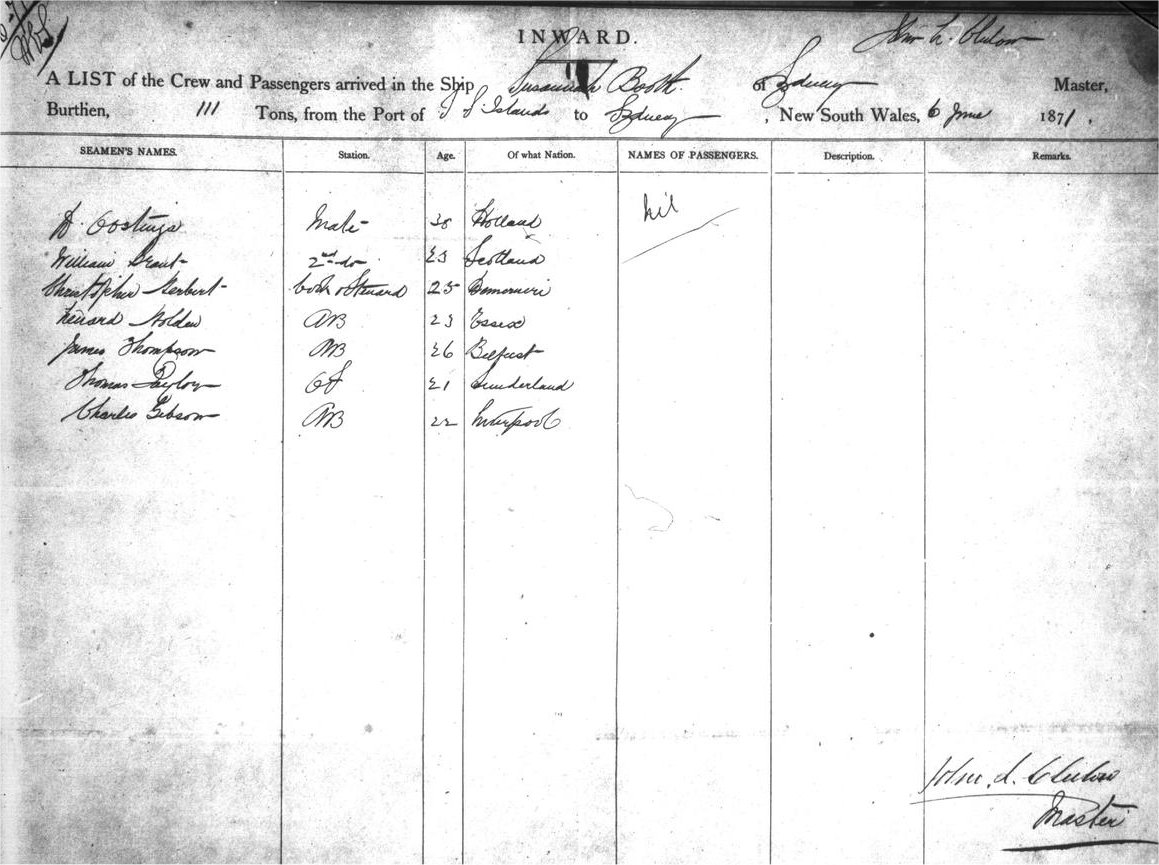 INWARD.
A LIST of the Crew and Passengers arrived in the Ship Susannah Booth of Sydney Master,
Burthen, 111 Tons, from the Port of S S Islands to Sydney, New South Wales, 6 June 1871.
SEAMEN'S NAMES. Station. Age. Of what Nation. NAMES OF PASSENGERS. Description. Remarks.
H. Oostings Mate 38 Holland nil
William Grant 2nd do 23 Scotland
Christopher Herbert Cook & Steward 25
Holden AB 23 Essex
James Thompson AB 26 Belfast
Thomas Taylor OS 21 Sunderland
Charles Gibson AB 22 Liverpool
John
Master